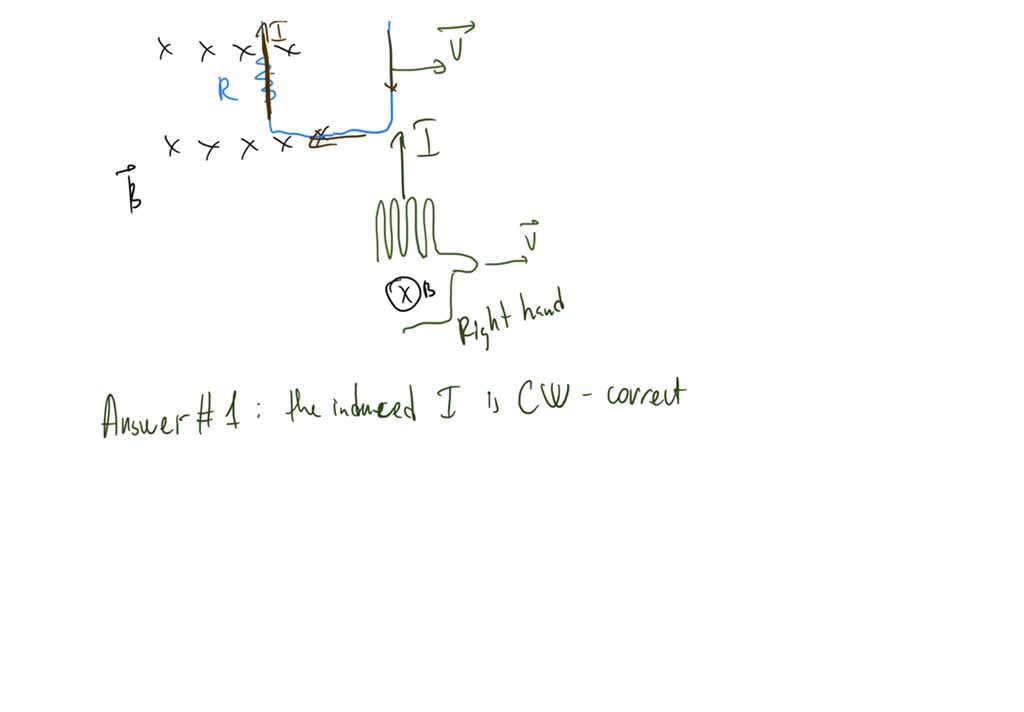 I
x x x x
V
R
x x x x x
I
B
V
x B
Right hand
Answer # 1 : the induced I is CW - correct